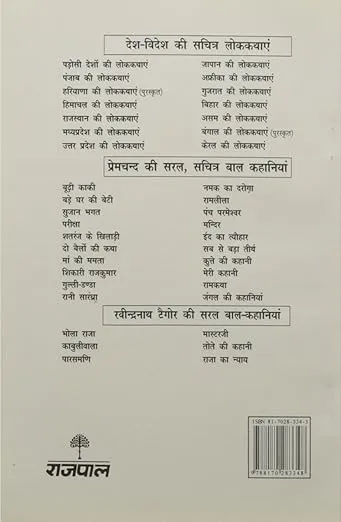 देश-विदेश की सचित्र लोककथाएं
पड़ोसी देशों की लोककथाएं
पंजाब की लोककथाएं
हरियाणा की लोककथाएं (पुरस्कृत)
हिमाचल की लोककथाएं
राजस्थान की लोककथाएं
मध्यप्रदेश की लोककथाएं
उत्तर प्रदेश की लोककथाएं
जापान की लोककथाएं
अफ्रीका की लोककथाएं
गुजरात की लोककथाएं
बिहार की लोककथाएं
असम की लोककथाएं
बंगाल की लोककथाएं (पुरस्कृत)
केरल की लोककथाएं
प्रेमचन्द की सरल, सचित्र बाल कहानियां
बूढ़ी काकी
बड़े घर की बेटी
सुजान भगत
परीक्षा
शतरंज के खिलाड़ी
दो बैलों की कथा
मां की ममता
शिकारी राजकुमार
गुल्ली-डण्डा
रानी सारंध्रा
नमक का दरोग़ा
रामलीला
पंच परमेश्वर
मन्दिर
ईद का त्यौहार
सब से बड़ा तीर्थ
कुत्ते की कहानी
मेरी कहानी
रामकथा
जंगल की कहानियां
रवीन्द्रनाथ टैगोर की सरल बाल-कहानियां
भोला राजा
काबुलीवाला
पारसमणि
मास्टरजी
तोते की कहानी
राजा का न्याय
राजपाल
ISBN 81-7028-334-3
9788170283348